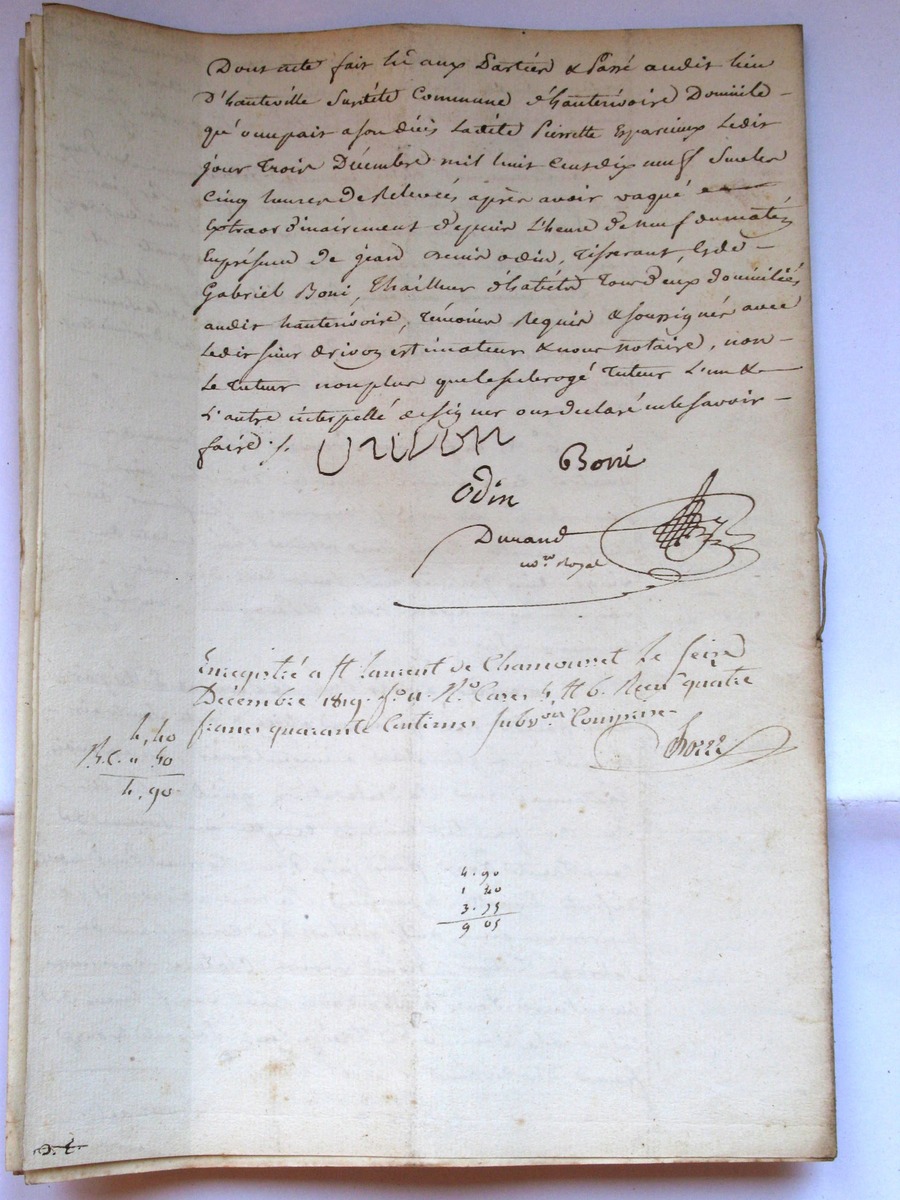 Dont acte fait lu aux Parties & Passé audit lieu
D'hauteville Susdite Commune d'hauterivoire Domicile
qu'occupait a son décès Ladite Pierrette Esparcieux Ledit
jour Trois Décembre mil huit Cent dix neuf Sur les
Cinq heures De Relevées après avoir vaqué
extraordinairement depuis L'heure de neuf du matin
En présence de jean odin, Tisserant, &de
Gabriel Boni, Thailleur d'habits Tous deux domiciliés
audit hauterivoire, Témoins Requis & soussignés avec
Ledit sieur estimateur & nous notaire, non
Le Tuteur non plus que le subrogé Tuteur L'un &
L'autre interpellé de signer ont declaré ne le savoir
faire ./.
Boni
Odin
Durand
no.re Royal
Enregistré a St Laurent de Chamousset Le seize
Décembre 1819. fo. 11. Ro. Cases 4 et 6. Reçu quatre
francs quarante Centimes subvon Comprise
4,40
R.C. " 50
4.90
4.90
1 40
3.75
9 05